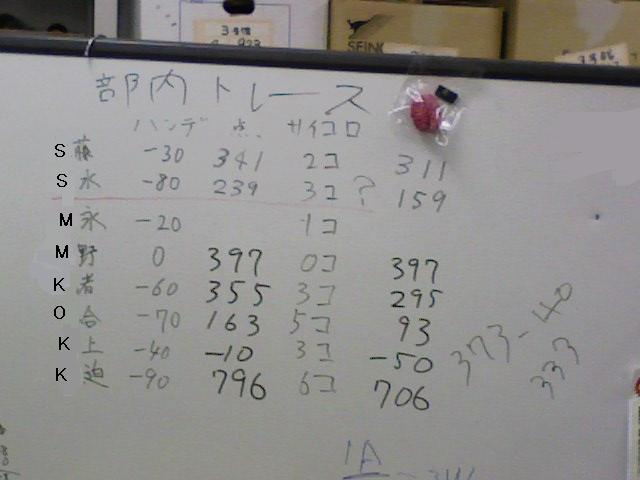 SEINO
部内トレース
ハンデ 点 サイコロ
S藤 -30 341 2コ 311
S水 -80 239 3コ? 159
M永 -20 1コ
M野 0 397 0コ 397
K者 -60 355 3コ 295
O合 -70 163 5コ 93
K上 -40 -10 3コ -50
K迫 -90 796 6コ 706
373-40
333
1A